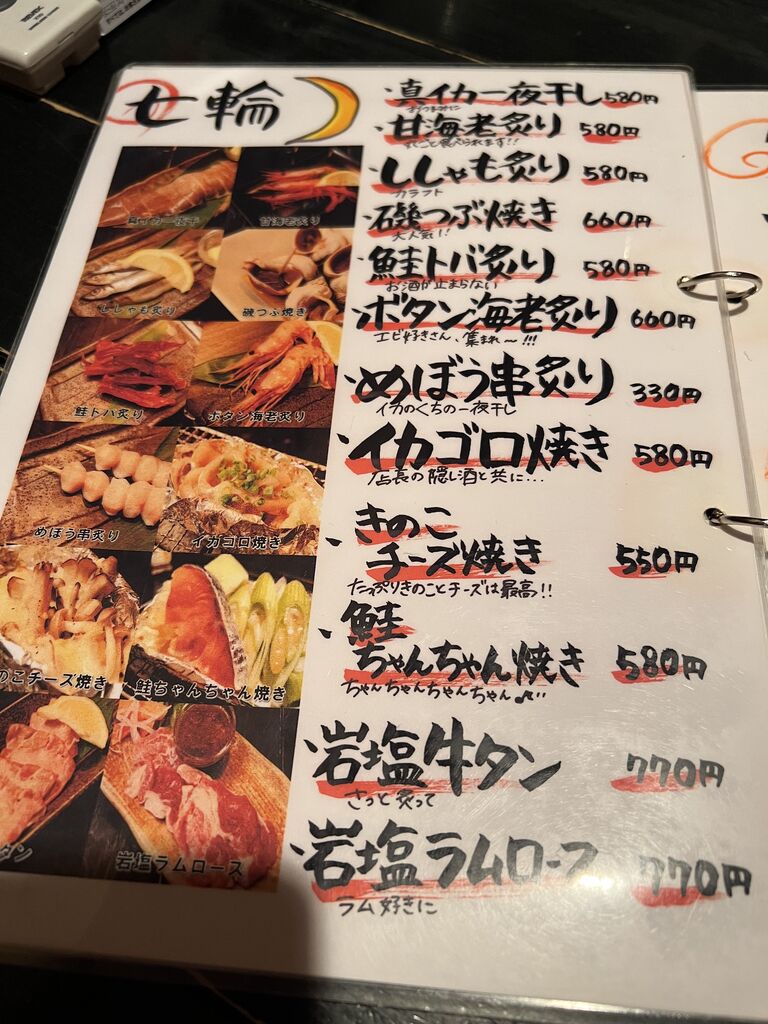 七輪
真イカ一夜干し 580円
おつまみに
甘海老炙り 580円
丸ごと食べられます!!
ししゃも炙り 580円
カラフト
石磯つぶ焼き 660円
大人気!!
鮭トバ炙り 580円
お酒が止まらない
ボタン海老炙り 660円
エビ好きさん、集まれ〜!!!
めぼう串炙り 330円
イカのくちの一夜干し
イカゴロ焼き 580円
店長の隠し酒と共に...
きのこ
チーズ焼き 550円
たっぷりきのことチーズは最高!!
鮭
ちゃんちゃん焼き 580円
ちゃんちゃんちゃんちゃん♪
岩塩牛タン 770円
さっと炙って
岩塩ラムロース 770円
ラム好きに
真イカ一夜干
甘海老炙り
ししゃも炙り
磯つぶ焼き
鮭トバ炙り
ボタン海老炙り
めぼう串炙り
イカゴロ焼き
のこチーズ焼き
鮭ちゃんちゃん焼き
タン
岩塩ラムロース